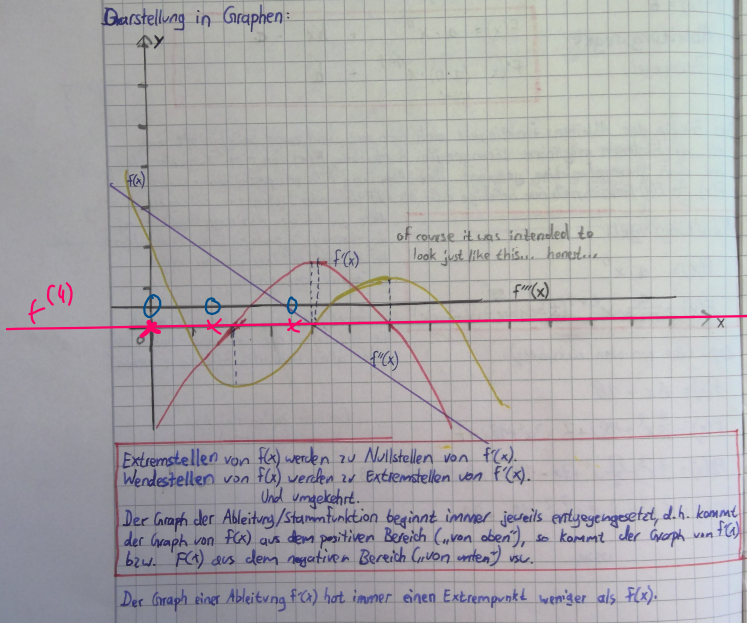 Darstellung in Graphen:
y
f(x)
of course it was intended to
look just like this... honest...
f'(x)
f'''(x)
f^(4)
x
0
f''(x)
Extremstellen von f(x) werden zu Nullstellen von f'(x).
Wendestellen von f(x) werden zu Extremstellen von f'(x).
Und umgekehrt.
Der Graph der Ableitung/Stammfunktion beginnt immer jeweils entgegengesetzt, d.h. kommt
der Graph von f(x) aus dem positiven Bereich („von oben"), so kommt der Graph von f'(x)
bzw. F(x) aus dem negativen Bereich („von unten") usw.
Der Graph einer Ableitung f'(x) hat immer einen Extrempunkt weniger als f(x).